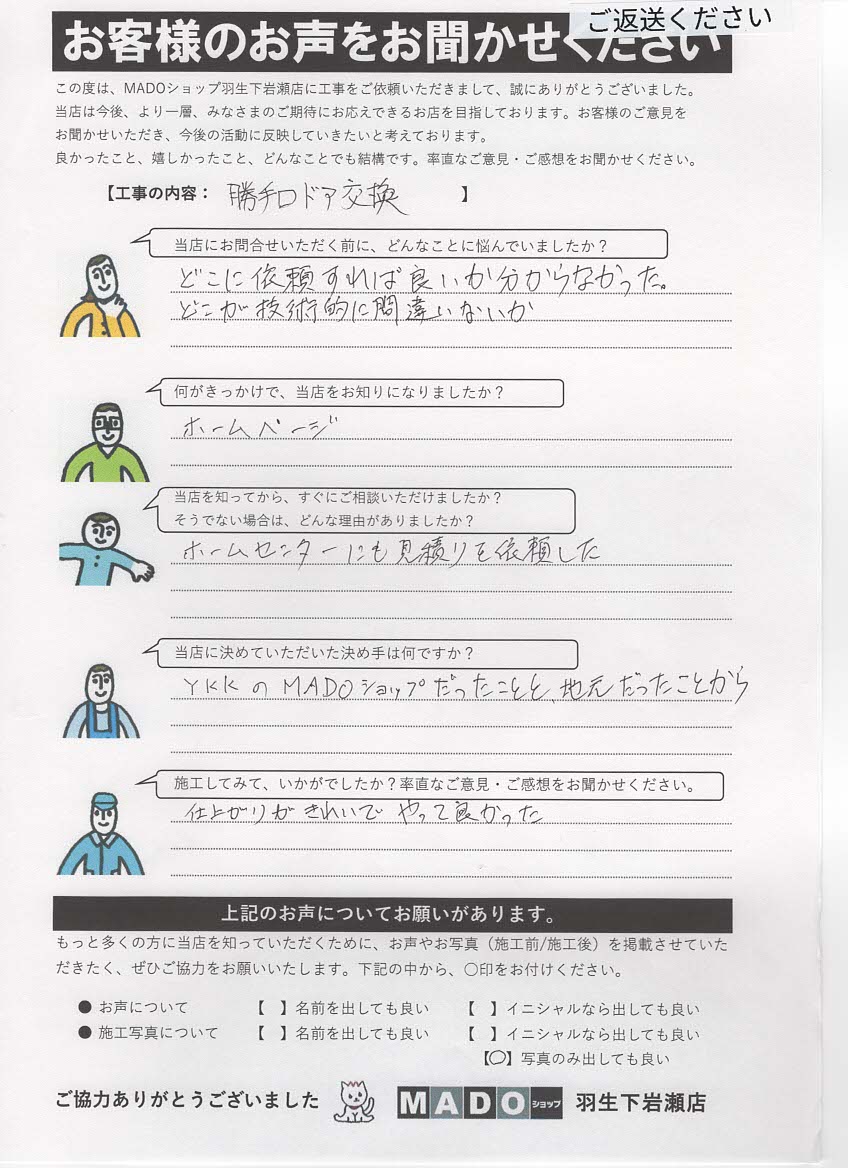 ご返送ください
お客様のお声をお聞かせください
この度は、MADOショップ羽生下岩瀬店に工事をご依頼いただきまして、誠にありがとうございました。
当店は今後、より一層、みなさまのご期待にお応えできるお店を目指しております。お客様のご意見を
お聞かせいただき、今後の活動に反映していきたいと考えております。
良かったこと、嬉しかったこと、どんなことでも結構です。率直なご意見・ご感想をお聞かせください。
【工事の内容： 勝手口ドア交換 】
当店にお問合せいただく前に、どんなことに悩んでいましたか？
どこに依頼すれば良いか分からなかった。
どこが技術的に間違いないか
何がきっかけで、当店をお知りになりましたか？
ホームページ
当店を知ってから、すぐにご相談いただけましたか？
そうでない場合は、どんな理由がありましたか？
ホームセンターにも見積りを依頼した
当店に決めていただいた決め手は何ですか？
YKKのMADOショップだったことと、地元だったことから
施工してみて、いかがでしたか？率直なご意見・ご感想をお聞かせください。
仕上がりがきれいでやって良かった
上記のお声についてお願いがあります。
もっと多くの方に当店を知っていただくために、お声やお写真（施工前/施工後）を掲載させていた
だきたく、ぜひご協力をお願いいたします。下記の中から、〇印をお付けください。
● お声について 【 】名前を出しても良い 【 】イニシャルなら出しても良い
● 施工写真について 【 】名前を出しても良い 【 】イニシャルなら出しても良い
【〇】写真のみ出しても良い
ご協力ありがとうございました MADOショップ 羽生下岩瀬店